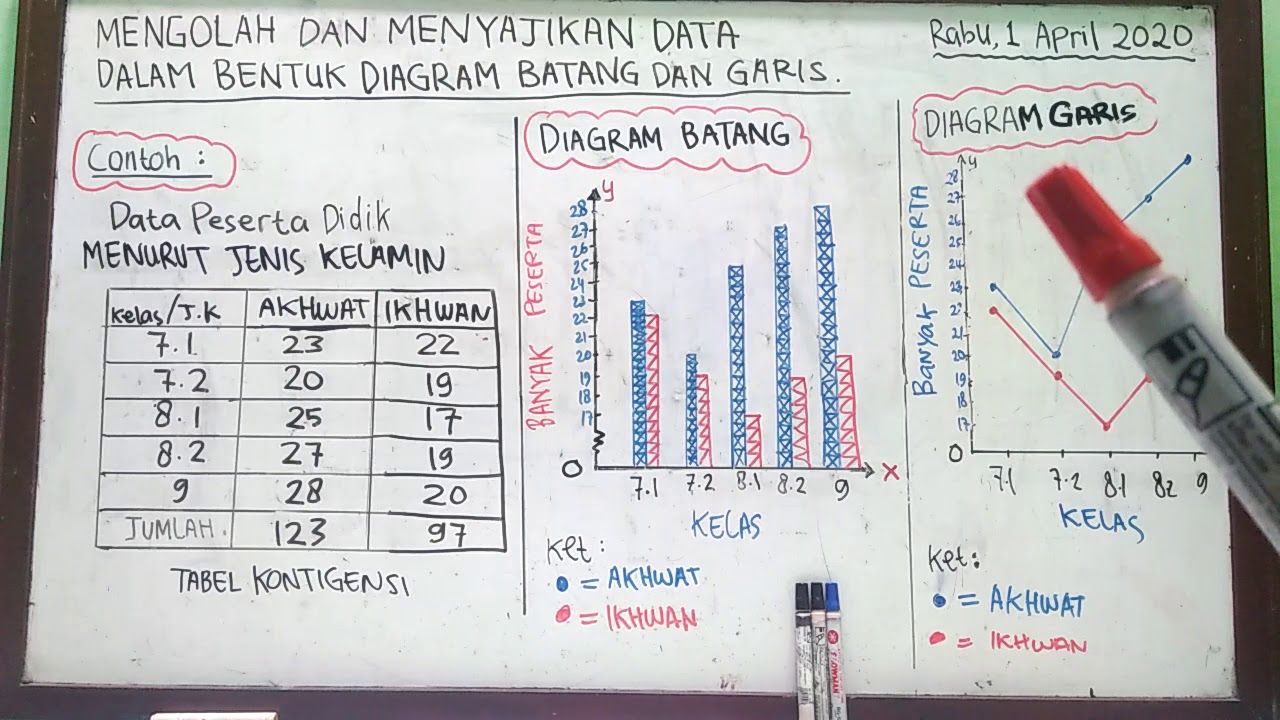 MENGOLAH DAN MENYAJIKAN DATA
DALAM BENTUK DIAGRAM BATANG DAN GARIS.
Rabu, 1 April 2020
Contoh :
Data Peserta Didik
MENURUT JENIS KELAMIN
Kelas/J.K AKHWAT IKHWAN
7.1 23 22
7.2 20 19
8.1 25 17
8.2 27 19
9 28 20
JUMLAH. 123 97
TABEL KONTIGENSI
DIAGRAM BATANG
y
BANYAK PESERTA
28
27
26
25
24
23
22
21
20
19
18
17
0
7.1 7.2 8.1 8.2 9 x
KELAS
Ket :
= AKHWAT
= IKHWAN
DIAGRAM GARIS
y
BANYAK PESERTA
28
27
26
25
24
23
22
21
20
19
18
17
0
7.1 7.2 8.1 82 9
KELAS
Ket :
= AKHWAT
= IKHWAN
SNOWMAN